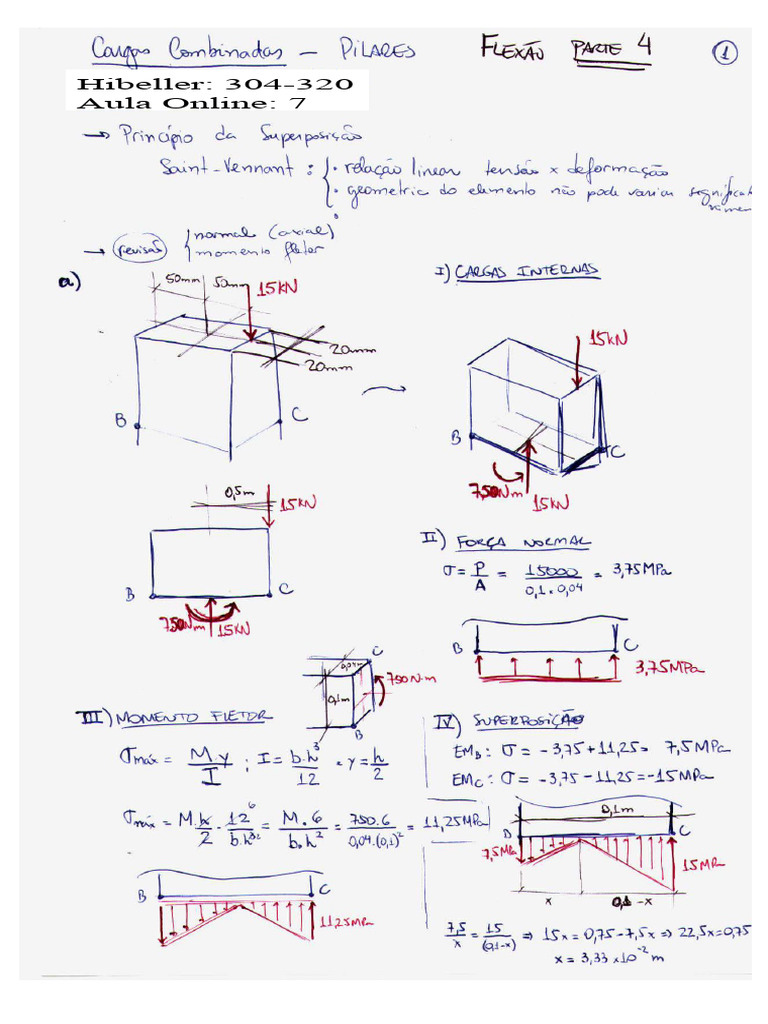 Cargas Combinadas – PILARES FLEXÃO PARTE 4 1
Hibeller: 304-320
Aula Online: 7
→ Princípio da Superposição
Saint-Vennant: { • relação linear tensão x deformação
• geometria do elemento não pode variar significat
→ revisão { normal (axial)
momento fletor
a)
50mm 50mm 15KN
20mm
20mm
B C
I) CARGAS INTERNAS
15KN
B C
750Nm 15KN
0,5m
15KN
B C
750Nm 15KN
II) FORÇA NORMAL
σ = P/A = 15000/0,1×0,04 = 3,75MPa
B C
3,75MPa
III) MOMENTO FLETOR
0,04m C
0,1m 750N·m
B
σmáx = M.y/I ; I = b.h³/12 • y = h/2
σmáx = M.h/2 . 12 6/b.h³² = M.6/b.h² = 750.6/0,04.(0,1)² = 11,25MPa
B C
11,25MPa
IV) SUPERPOSIÇÃO
EM B: σ = -3,75+11,25= 7,5MPa
EM C: σ = -3,75-11,25=-15MPa
0,1m
B C
7,5MPa 15MPa
x 0,1 -x
7,5/x = 15/(0,1-x) ⇒ 15x = 0,75-7,5x ⇒ 22,5x=0,75
x = 3,33 x10⁻² m